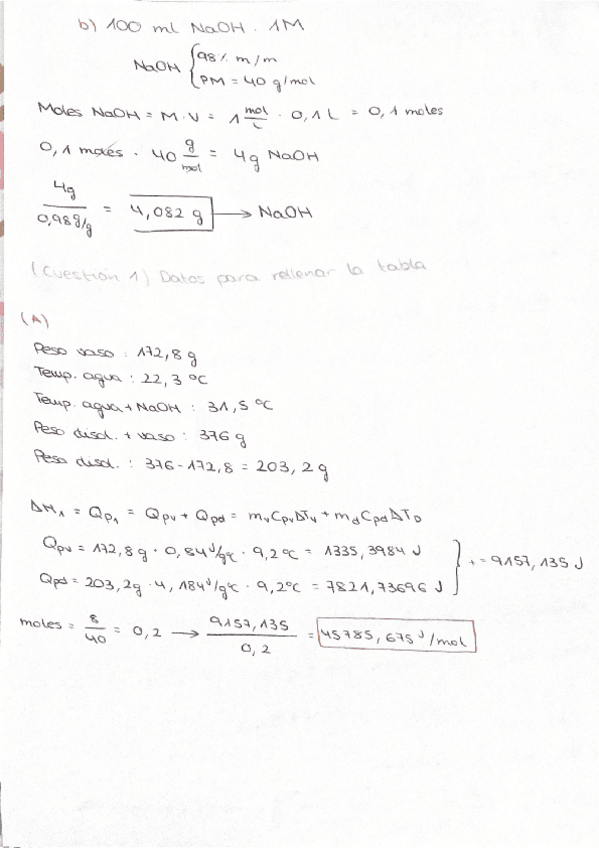 b) 100 ml NaOH 1M
NaOH { 98% m/m
PM = 40 g/mol
Moles NaOH = M·V = 1 mol/L · 0,1 L = 0,1 moles
0,1 moles · 40 g/mol = 4g NaOH
4g / 0,98 g/g = 4,082 g → NaOH
(Cuestión 1) Datos para rellenar la tabla
(A)
Peso vaso : 172,8 g
Temp. agua : 22,3 ºC
Temp. agua + NaOH : 31,5 ºC
Peso disol. + vaso : 376 g
Peso disol. : 376 - 172,8 = 203,2 g
ΔH₁ = Qp₁ = Qpv + Qpd = mv Cpv ΔTv + md Cpd ΔTD
Qpv = 172,8 g · 0,84 J/gºC · 9,2 ºC = 1335,3984 J
Qpd = 203,2g · 4,184 J/gºC · 9,2ºC = 7821,73696 J } + = 9157,135 J
moles = 8/40 = 0,2 → 9157,135 / 0,2 = 45785,675 J/mol